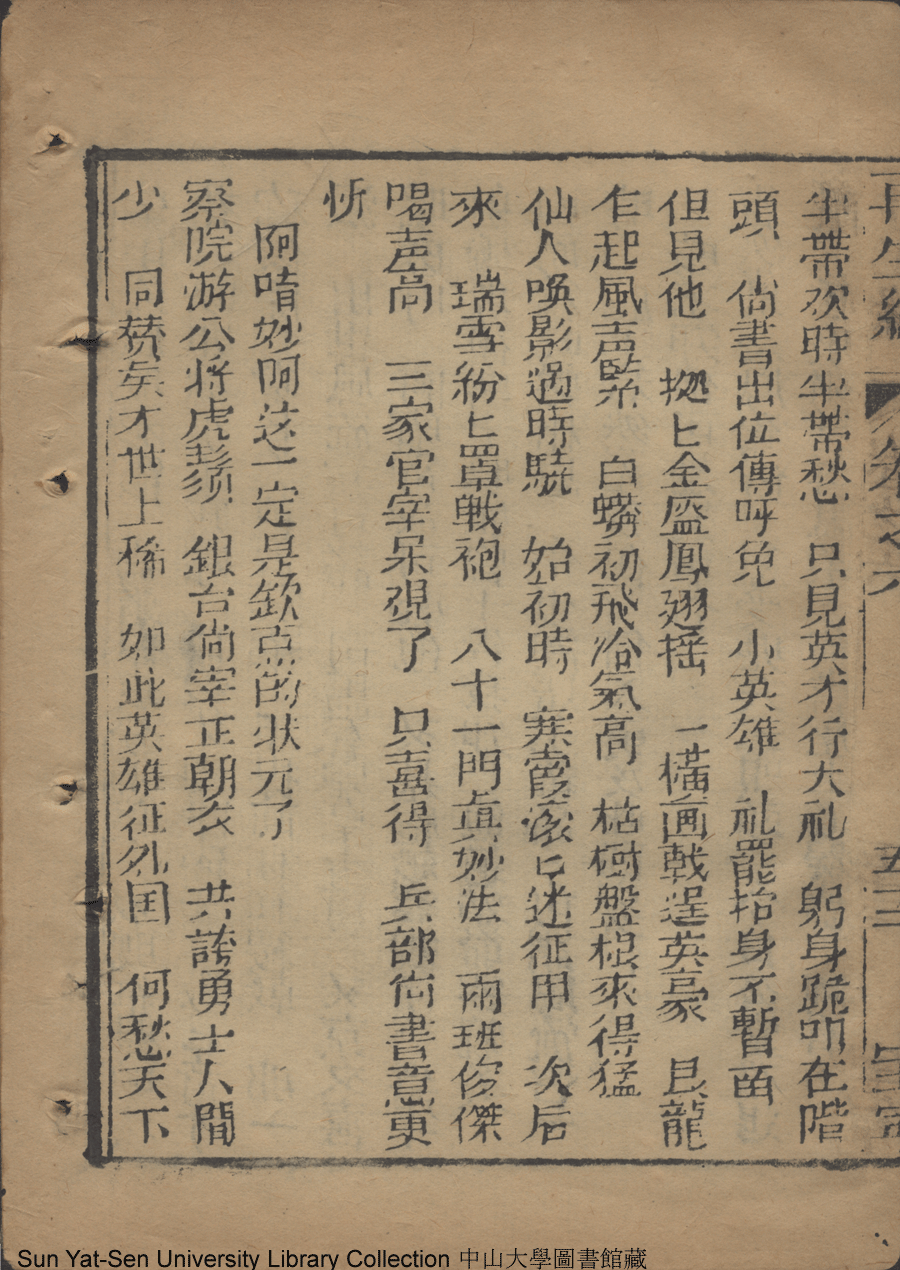 再生緣 卷之六 五三
半帶欢時半帶愁 只見英才行大礼 躬身跪叩在階
頭 尙書出位傳呼免 小英雄 礼罷抬身不暫畄
但見他 揔匕金盔鳳翅摇 一橫画戟逞英豪 艮龍
乍起風声緊 白蟒初飛冷氣高 枯樹盤根來得猛
仙人喚影過時驍 始初時 寒霞滚匕迷征甲 次后
來 瑞雪紛匕罩戰袍 八十一門真妙法 兩班俊傑
喝声高 三家官宰呆覌了 只喜得 兵部尙書意更
忻
阿唶妙阿这一定是欽点的状元了
察院游公将虎鬚 銀台尙宰正朝衣 共誇勇士人間
少 同赞矣才世上稀 如此英雄征外国 何愁天下
Sun Yat-Sen University Library Collection 中山大學圖書館藏